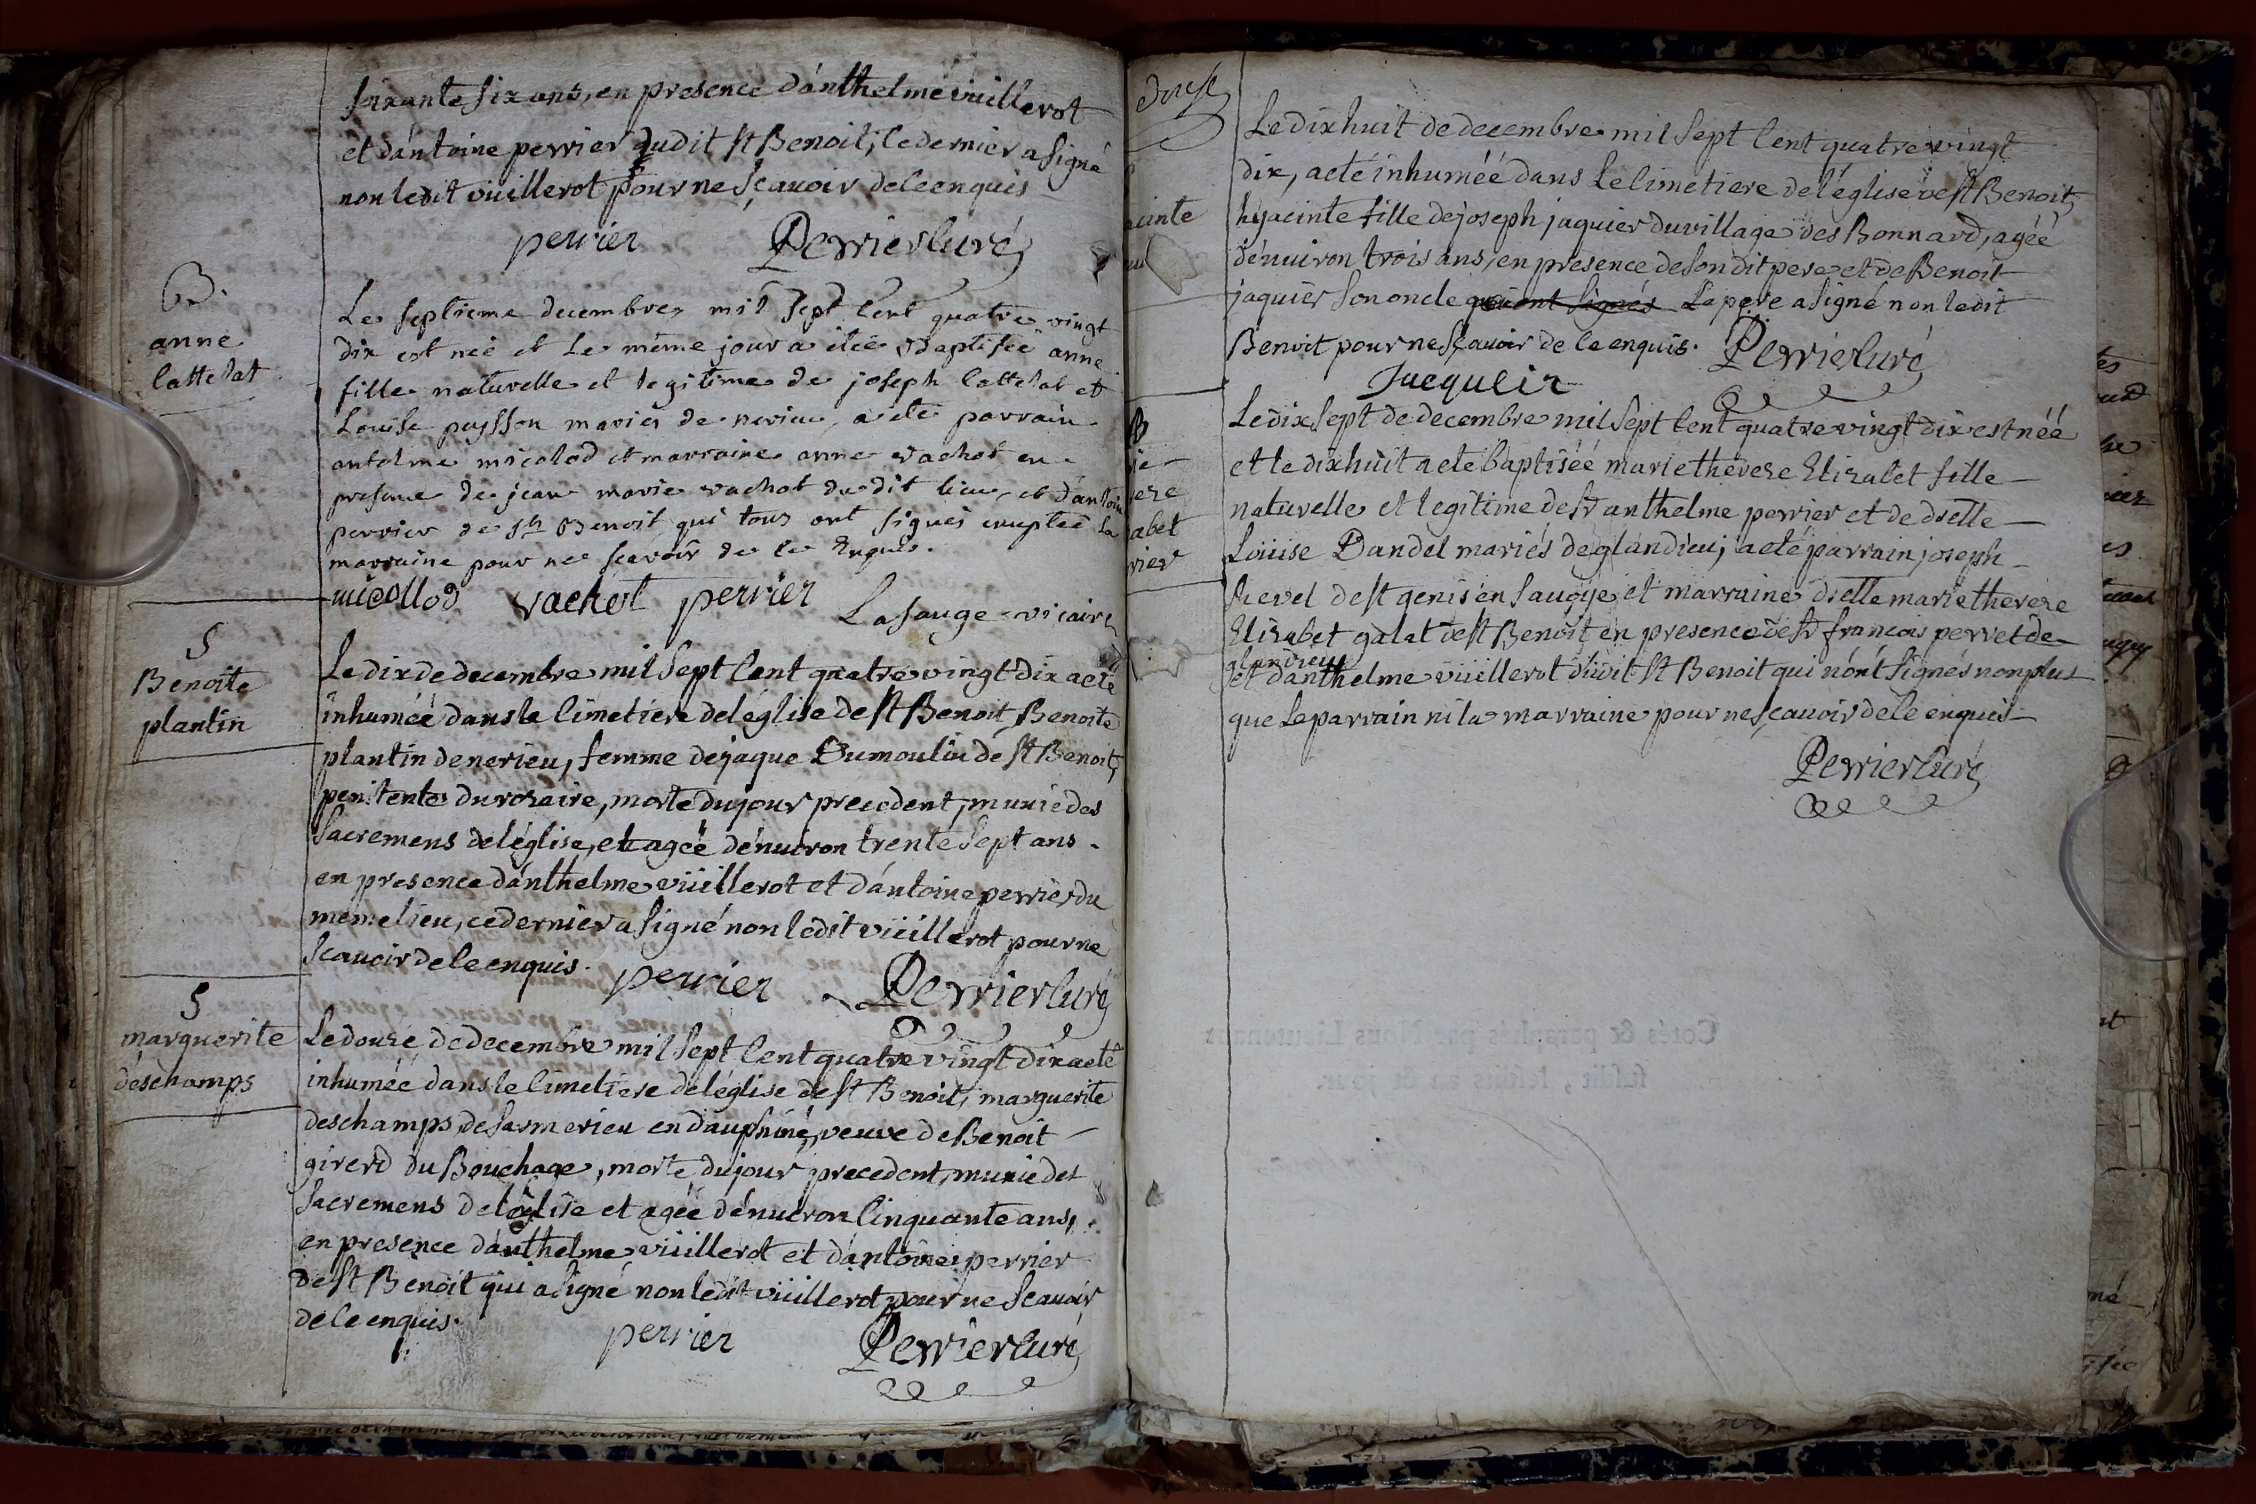 soixante six ans, en presence d'anthelme vüillerot
et d'antoine perrier dudit st Benoit, ce dernier a signé
non ledit vüillerot pour ne sçavoir de ce enquis
perrier Perrier curé
B.
anne
cattelat
Le septieme decembre mil sept cent quatre vingt
dix est neé et le même jour a étée Baptisée anne
fille naturelle et legitime de joseph cattelat et
Louise puysson mariés de nerieu, a été parrain
antelme micolod et marraine anne vachot en
presence de jean marie vachot dudit lieu, et d'antoine
perrier de st Benoit qui tous ont signés exceptée la
marraine pour ne scavoir de ce Enquis.
micollod vachot perrier Lasauge vicaire
S
Benoite
plantin
Le dix de decembre mil sept cent quatre vingt dix a été
inhuméé dans le cimetiere de l'église de st Benoit, Benoite
plantin de nerieu, femme de jaque Dumoulin de st Benoit,
penitente du rozaire, morte du jour precedent, munie des
sacremens de l'église, et agéé d'enuiron trente sept ans.
en presence d'anthelme vüillerot et d'antoine perrier du
meme lieu, ce dernier a signé non ledit vüillerot pour ne
scauoir de ce enquis.
perrier Perrier curé
S
marguerite
deschamps
Le douze de decembre mil sept cent quatre vingt dix a été
inhuméé dans le cimetiere de l'église de st Benoit, marguerite
deschamps de sarmerieu en dauphiné, veuve de Benoit
girerd du Bouchage, morte du jour precedent, munie des
sacremens de l'église et agéé d'enuiron cinquante ans,
en presence d'anthelme vüillerot et d'antoine perrier
de st Benoit qui a signé non ledit vüillerot pour ne scauoir
de ce enquis.
perrier Perrier curé
douze
acinte
Le dix huit de decembre mil sept cent quatre vingt
dix, a eté inhuméé dans le cimetiere de l'église de st Benoit,
hyacinte fille de joseph jaquier du village des Bonnard, agéé
d'enuiron trois ans, en presence de son dit pere et de Benoit
jaquier son oncle qui ont signés Le pere a signé non ledit
Benoit pour ne sçauoir de ce enquis. Perrier curé
Jacquier
B
ie
reze
abet
rier
Le dix sept de decembre mil sept cent quatre vingt dix est néé
et le dix huit a eté baptiséé marie thereze Elizabet fille
naturelle et legitime de sr anthelme perrier et de dlelle
Loüise Dandel mariés de glandieu; a eté parrain joseph
Revel de st genis en sauoye et marraine dlelle marie thereze
Elizabet galat de st Benoit en presence de sr francois perret de
glandieu
et d'anthelme vüillerot dudit st Benoit qui n'ont signés non plus
que le parrain ni la marraine pour ne sçauoir de ce enquis
Perrier curé